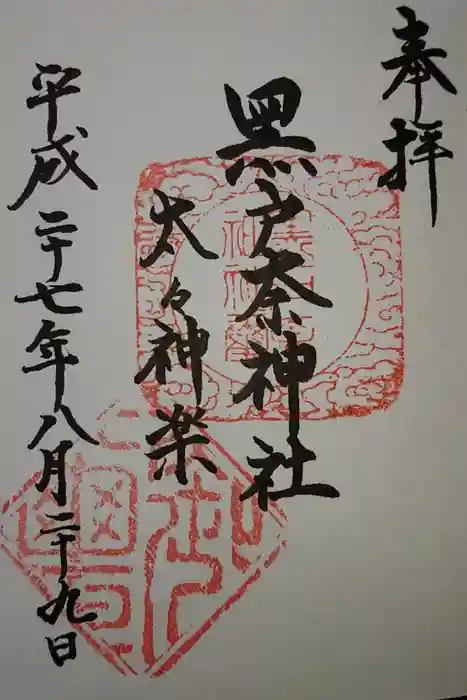 奉拝
黒戸奈神社
大々神楽
平成二十七年八月二十九日